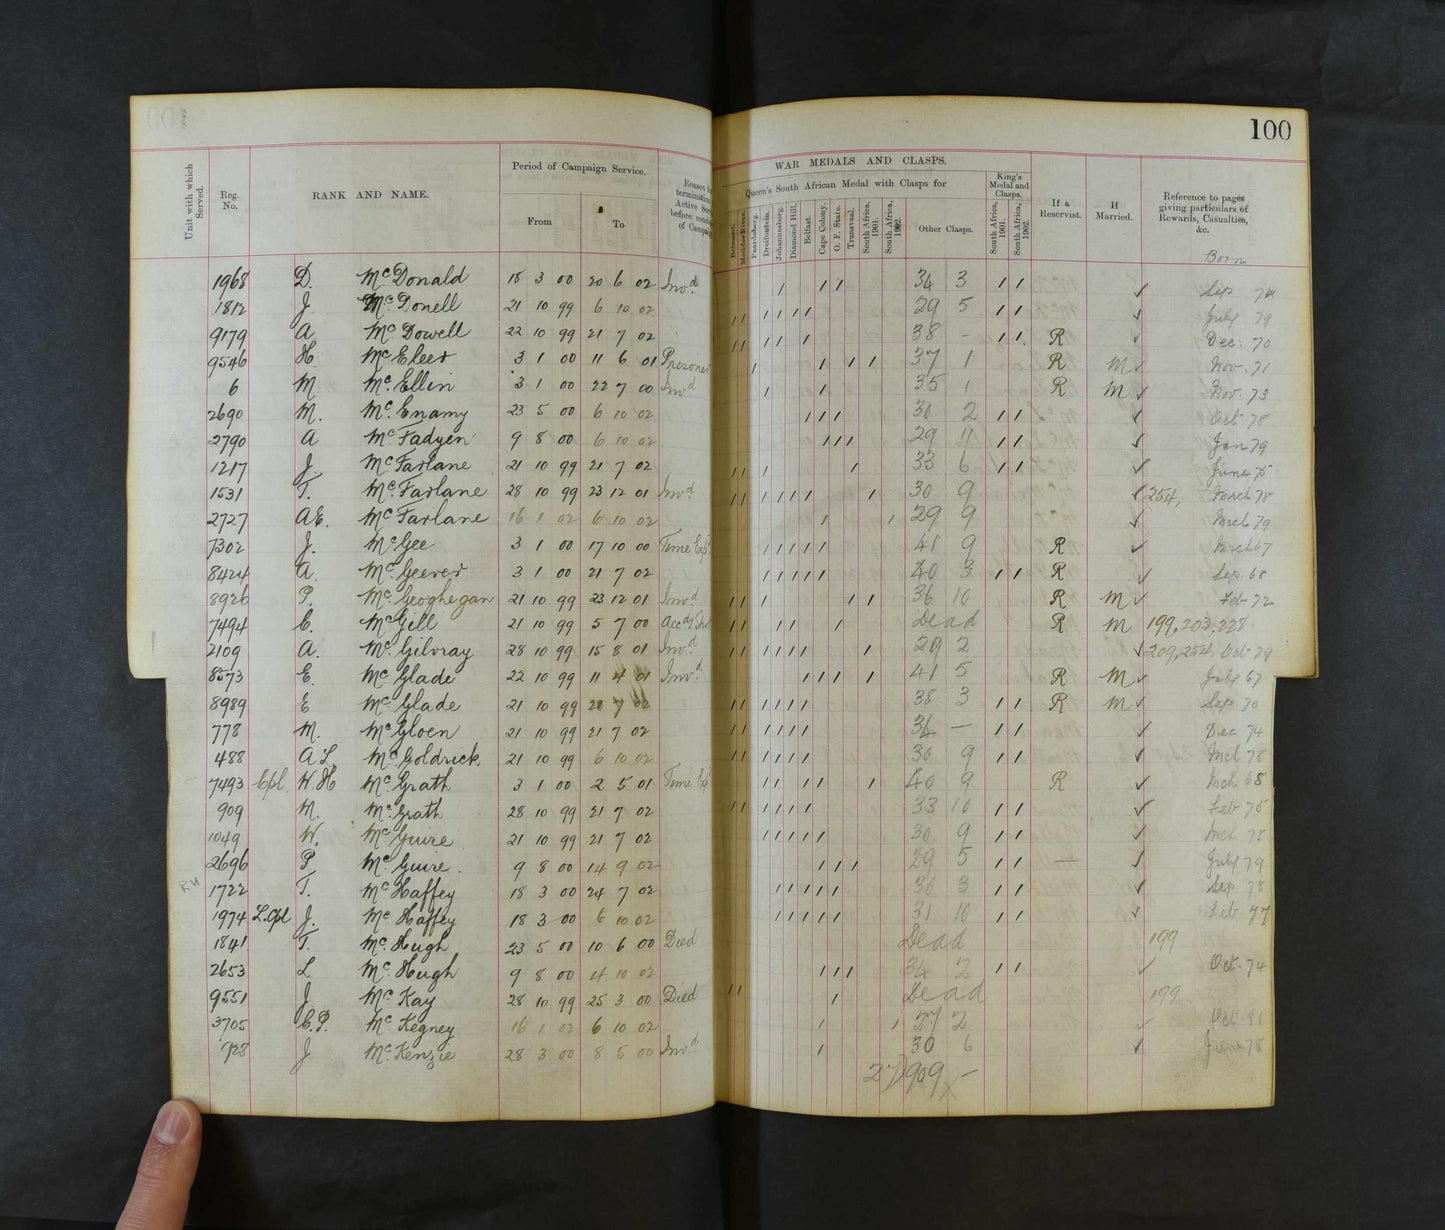 100
WAR MEDALS AND CLASPS.
Unit with which Served.
Reg. No.
RANK AND NAME.
Period of Campaign Service.
From
To
Queen's South African Medal with Clasps for
King's Medal and Clasps.
Belmont.
Modder River.
Paardeberg.
Driefontein.
Johannesberg.
Diamond Hill.
Belfast.
Cape Colony.
O. F. State.
Transvaal.
South Africa, 1901.
South Africa, 1902.
Other Clasps.
South Africa, 1901.
South Africa, 1902.
If a Reservist.
If Married.
Reference to pages giving particulars of Rewards, Casualties, &c.
Born
1968 D. McDonald 18 3 00 20 6 02 Invd 34 3 Sep 74
1812 J. McDonell 21 10 99 6 10 02 29 5 July 79
9179 A McDowell 22 10 99 21 7 02 38 - R Dec. 70
9546 H McEleer 3 1 00 11 6 01 Prisoner 37 1 R M Nov. 71
6 M McEllin 3 1 00 22 7 00 Invd 35 1 R M Nov. 73
2690 M. McEnamy 23 5 00 6 10 02 30 2 Oct 78
2790 A McFadyen 9 8 00 6 10 02 29 11 Jan 79
1217 J. McFarlane 21 10 99 21 7 02 33 6 June 75
1531 T. McFarlane 28 10 99 23 12 01 Invd 30 9 254, March 78
2727 AE. McFarlane 16 1 02 6 10 02 29 9 Mch 79
7302 J. McGee 3 1 00 17 10 00 Time Exp 41 9 R March 67
8424 A. McGeever 3 1 00 21 7 02 40 3 R Sep. 68
8926 P. McGeoghegan 21 10 99 23 12 01 Invd 36 10 R M Feb 72
7494 C. McGill 21 10 99 5 7 00 Dead R M 199, 203, 228
2109 A. McGilvray 28 10 99 15 8 01 Invd 29 2 209, 254, Oct 79
8573 E. McGlade 22 10 99 11 4 01 Invd 41 5 R M July 67
8989 E McGlade 21 10 99 21 7 02 38 3 R M Sep. 70
778 M. McGloen 21 10 99 21 7 02 34 - Dec 74
488 A L McGoldrick 21 10 99 6 10 02 30 9 Mch 78
7493 Cpl. W. H McGrath 3 1 00 2 5 01 Time Exp 40 9 R Mch 68
909 M. McGrath 28 10 99 21 7 02 33 10 Feb 75
1049 W. McGuire 21 10 99 21 7 02 30 9 Mch 78
2696 P McGuire. 9 8 00 14 9 02 29 5 July 79
1722 T. McHaffey 18 3 00 24 7 02 36 3 Sep 78
1974 L.Cpl J. McHaffey 18 3 00 6 10 02 31 10 Feb 77
1841 T. McHugh 23 5 00 10 6 00 Died Dead 199
2653 L McHugh 9 8 00 4 10 02 34 2 Oct. 74
9551 J McKay 28 10 99 25 3 00 Died Dead 199
3705 C.P. McKegney 16 1 02 6 10 02 27 2 Oct. 81
928 J McKenzie 28 3 00 8 5 00 Invd 30 6 June 78
27)909 -